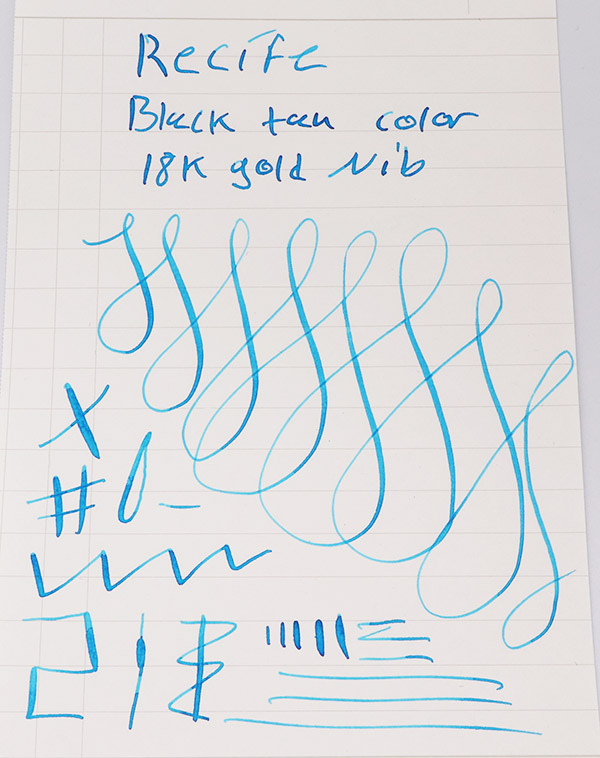 Recife
Black tan color
18K gold Nib
X
#